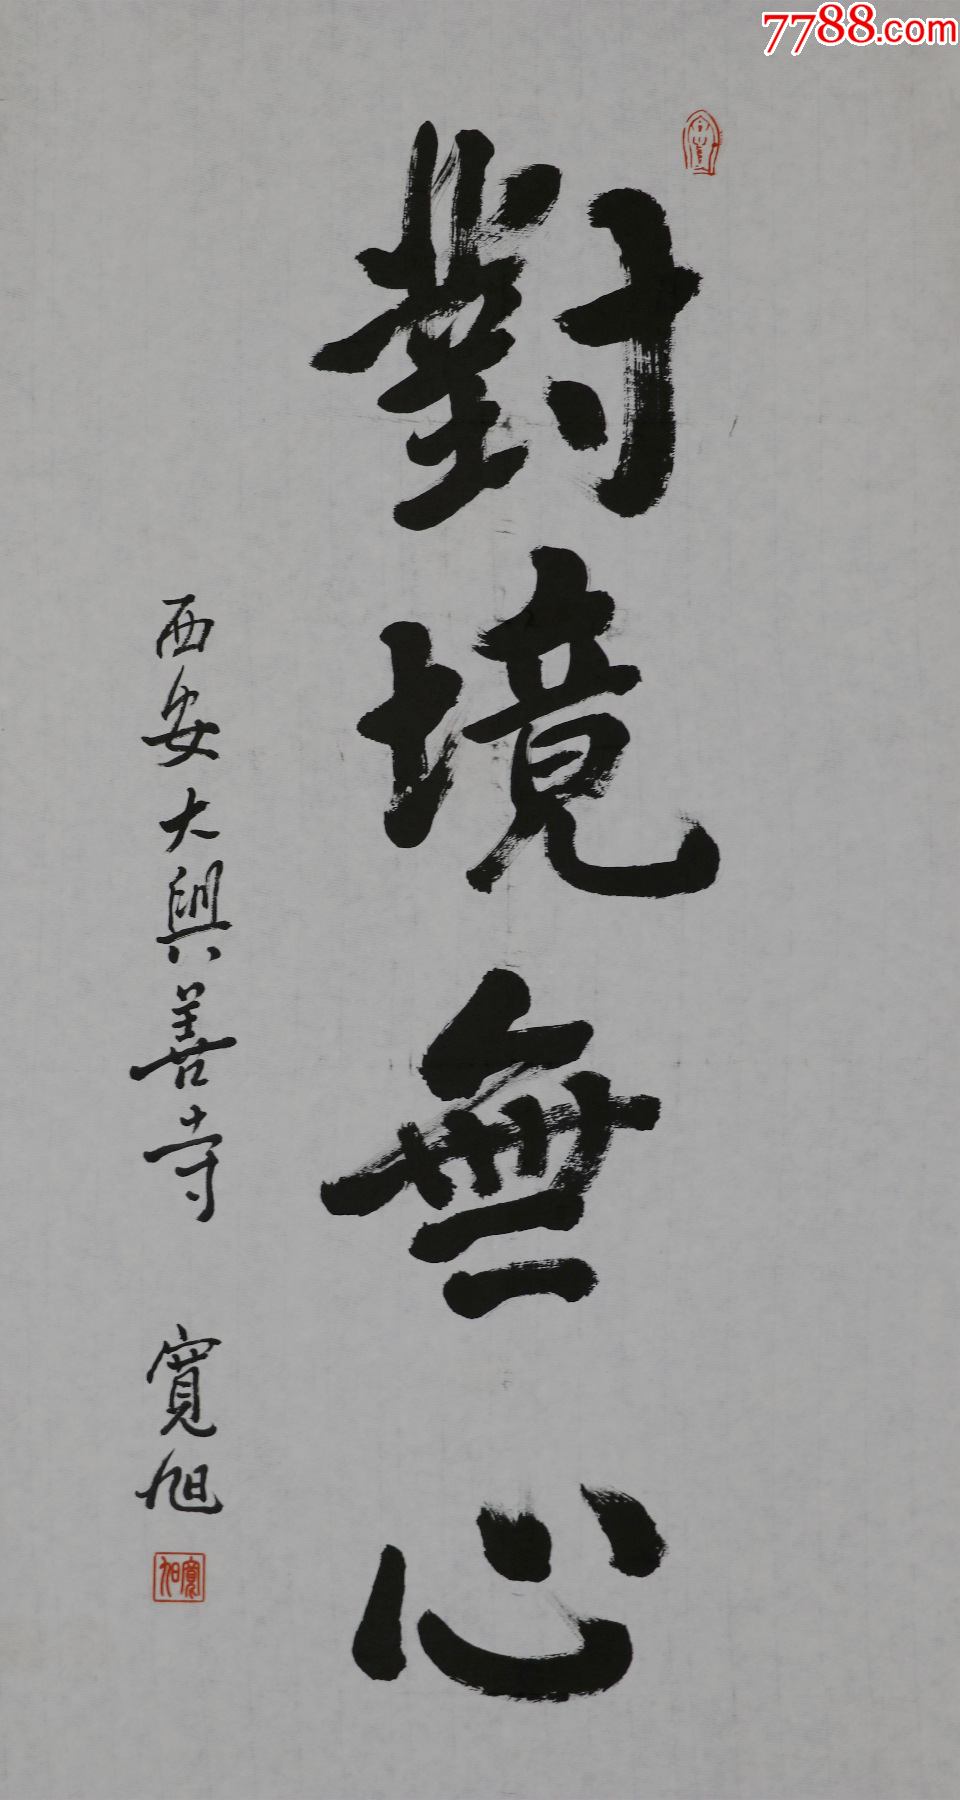 7788.com
對境無心
西安大興善寺 寬旭
寬旭